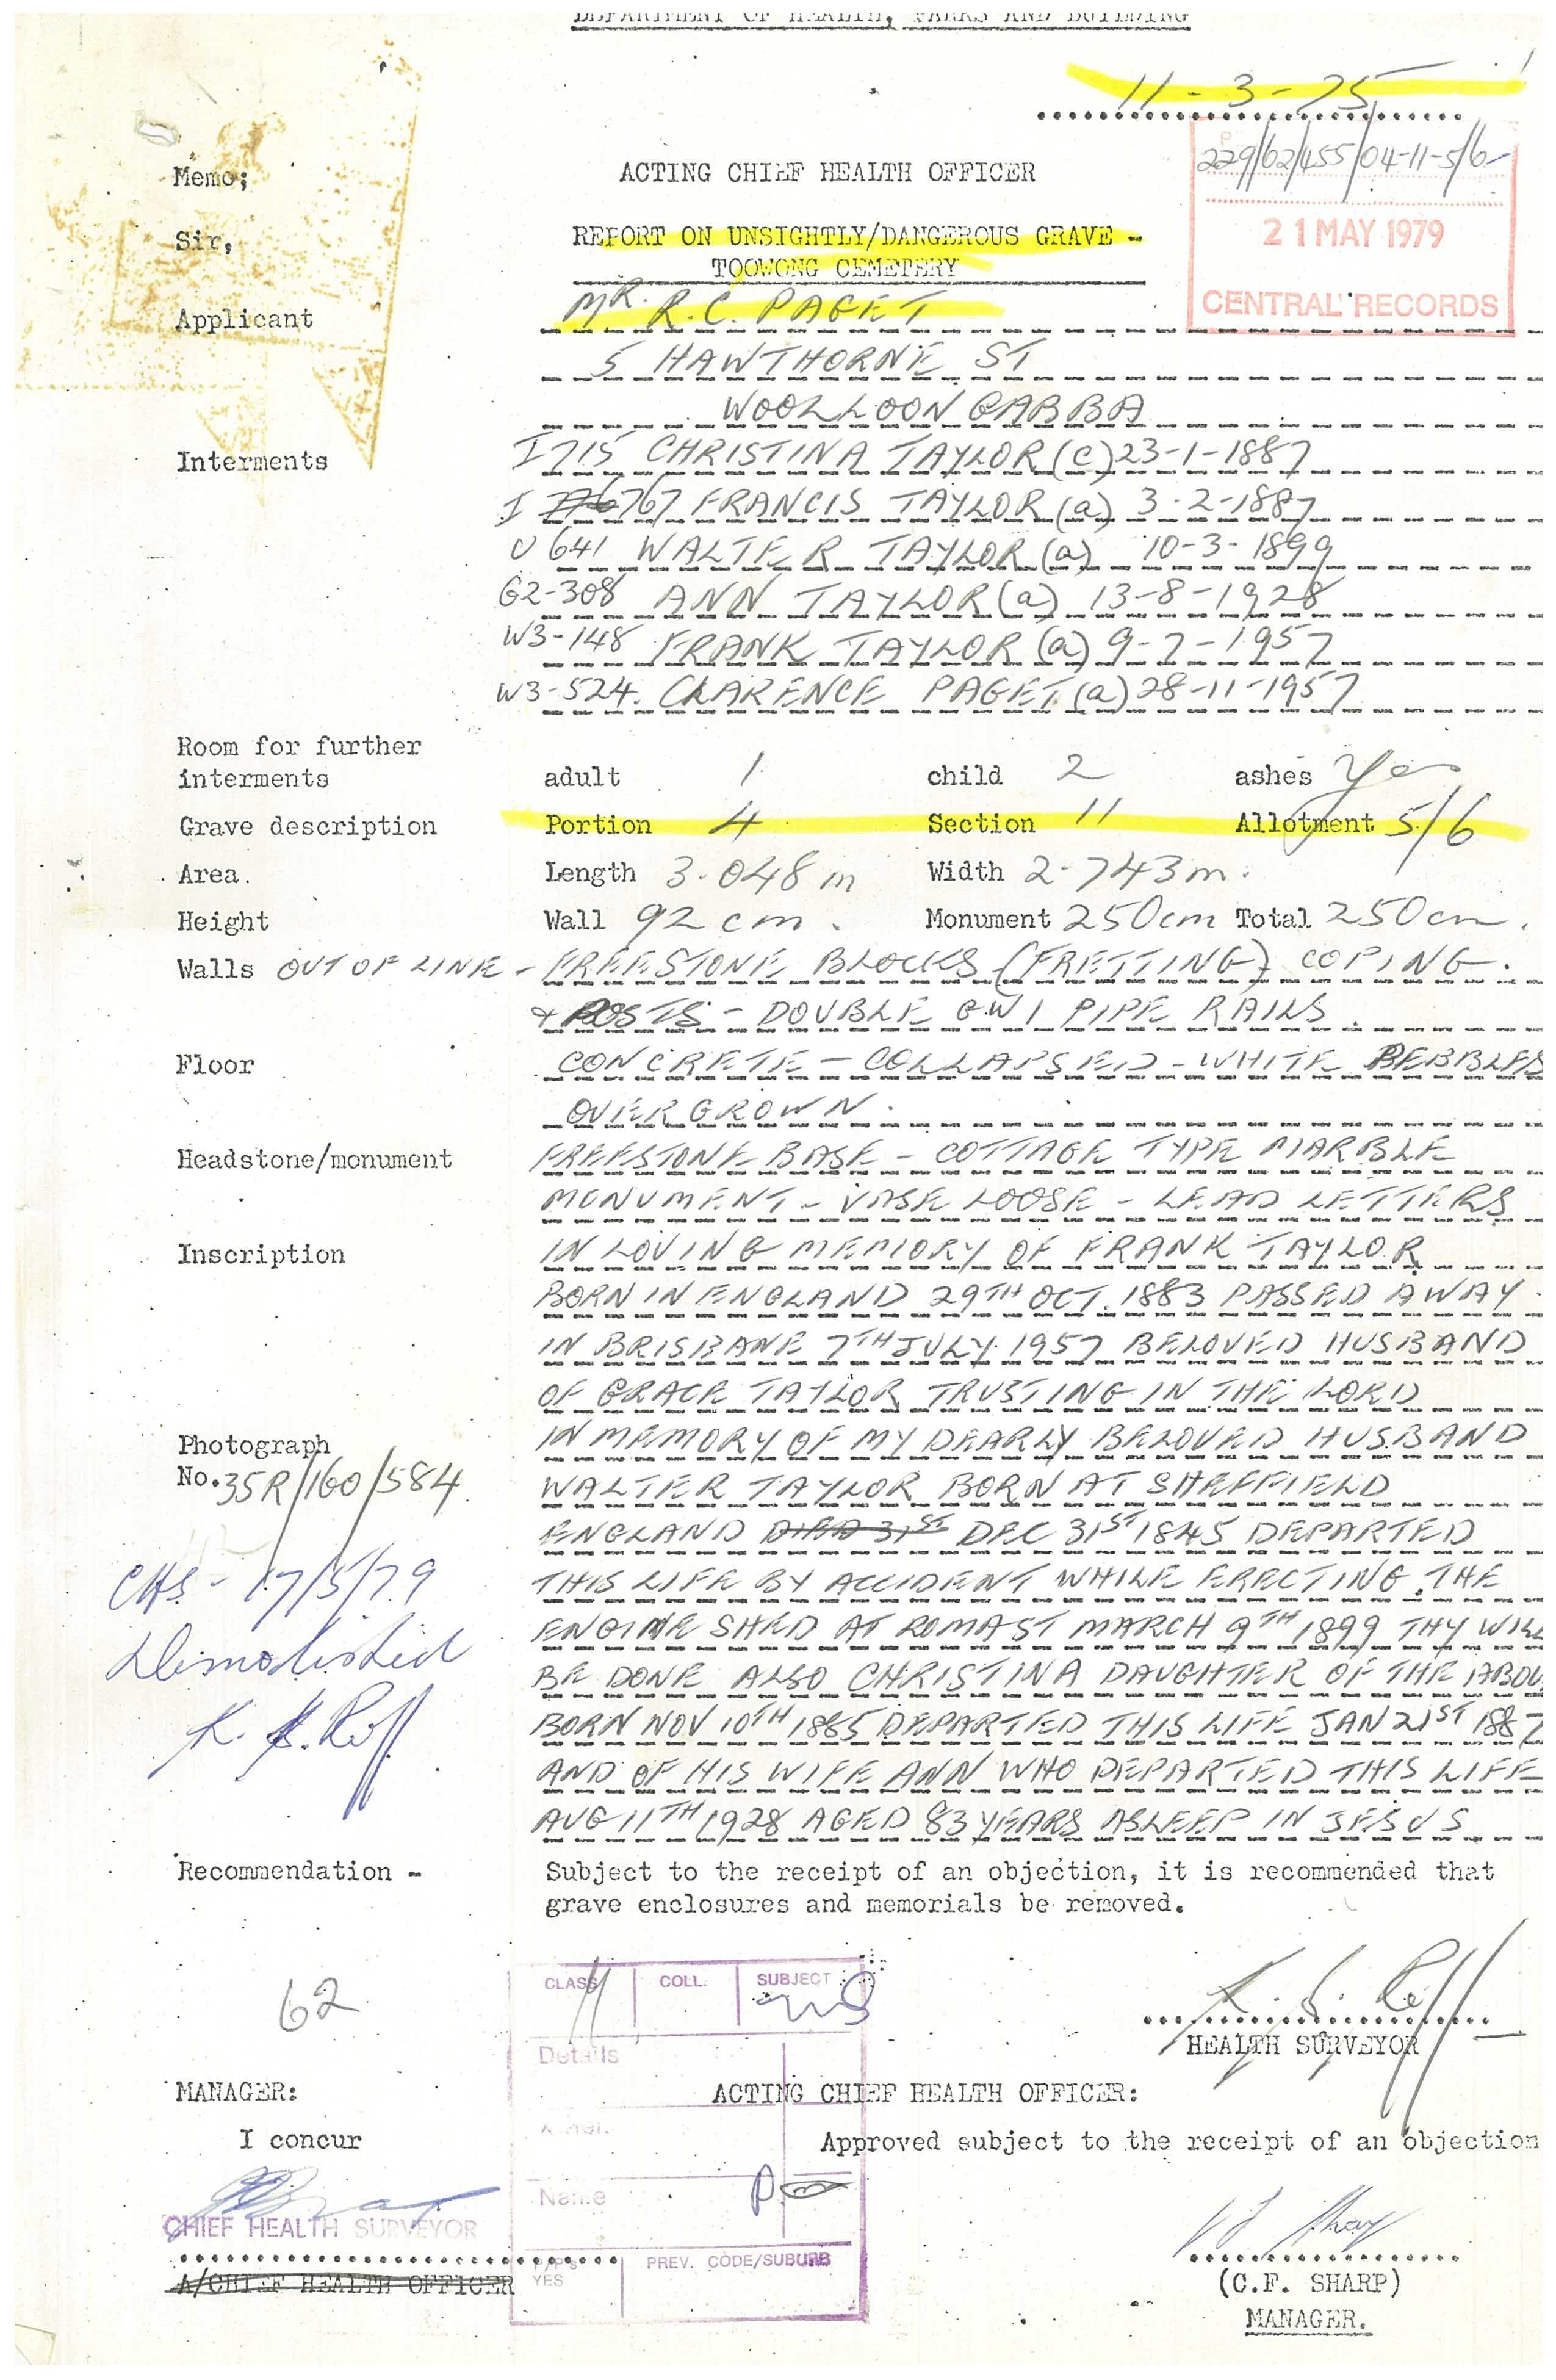 DEPARTMENT OF HEALTH, PARKS AND BUILDING
11-3-75
229/62/455/04-11-5/6
Memo;
ACTING CHIEF HEALTH OFFICER
Sir,
REPORT ON UNSIGHTLY/DANGEROUS GRAVE -
21 MAY 1979
TOOWONG CEMETERY
CENTRAL RECORDS
Applicant MR. R.C. PAGET
5 HAWTHORNE ST
WOOLLOONGABBA
Interments I715 CHRISTINA TAYLOR (c) 23-1-1887
I 767 FRANCIS TAYLOR (a) 3-2-1887
U641 WALTER TAYLOR (a) 10-3-1899
G2-308 ANN TAYLOR (a) 13-8-1928
W3-148 FRANK TAYLOR (a) 9-7-1957
W3-524. CLARENCE PAGET (a) 28-11-1957
Room for further
interments adult 1 child 2 ashes Yes
Grave description Portion 4 Section 11 Allotment 5/6
Area. Length 3.048 m Width 2.743 m.
Height Wall 92 cm. Monument 250cm Total 250cm.
Walls OUT OF LINE - FREESTONE BLOCKS (FRETTING) COPING.
& POSTS - DOUBLE GWI PIPE RAILS.
Floor CONCRETE - COLLAPSED - WHITE PEBBLES
OVERGROWN.
Headstone/monument FREESTONE BASE - COTTAGE TYPE MARBLE
MONUMENT - VASE LOOSE - LEAD LETTERS
Inscription IN LOVING MEMORY OF FRANK TAYLOR
BORN IN ENGLAND 29TH OCT. 1883 PASSED AWAY
IN BRISBANE 7TH JULY 1957 BELOVED HUSBAND
OF GRACE TAYLOR TRUSTING IN THE LORD
Photograph IN MEMORY OF MY DEARLY BELOVED HUSBAND
No. 35R/160/584 WALTER TAYLOR BORN AT SHEFFIELD
ENGLAND DIED 31ST DEC 31ST 1845 DEPARTED
CHS - 17/5/79 THIS LIFE BY ACCIDENT WHILE ERECTING THE
ENGINE SHED AT ROMA ST MARCH 9TH 1899 THY WILL
Demolished BE DONE ALSO CHRISTINA DAUGHTER OF THE ABOV
BORN NOV 10TH 1885 DEPARTED THIS LIFE JAN 21ST 1887
AND OF HIS WIFE ANN WHO DEPARTED THIS LIFE
AUG 11TH 1928 AGED 83 YEARS ASLEEP IN JESUS
Recommendation - Subject to the receipt of an objection, it is recommended that
grave enclosures and memorials be removed.
62
CLASS COLL. SUBJECT
HEALTH SURVEYOR
Details
MANAGER: ACTING CHIEF HEALTH OFFICER:
I concur Approved subject to the receipt of an objection
Name
CHIEF HEALTH SURVEYOR
PREV. CODE/SUBURB
YES
A/CHIEF HEALTH OFFICER (C.F. SHARP)
MANAGER.